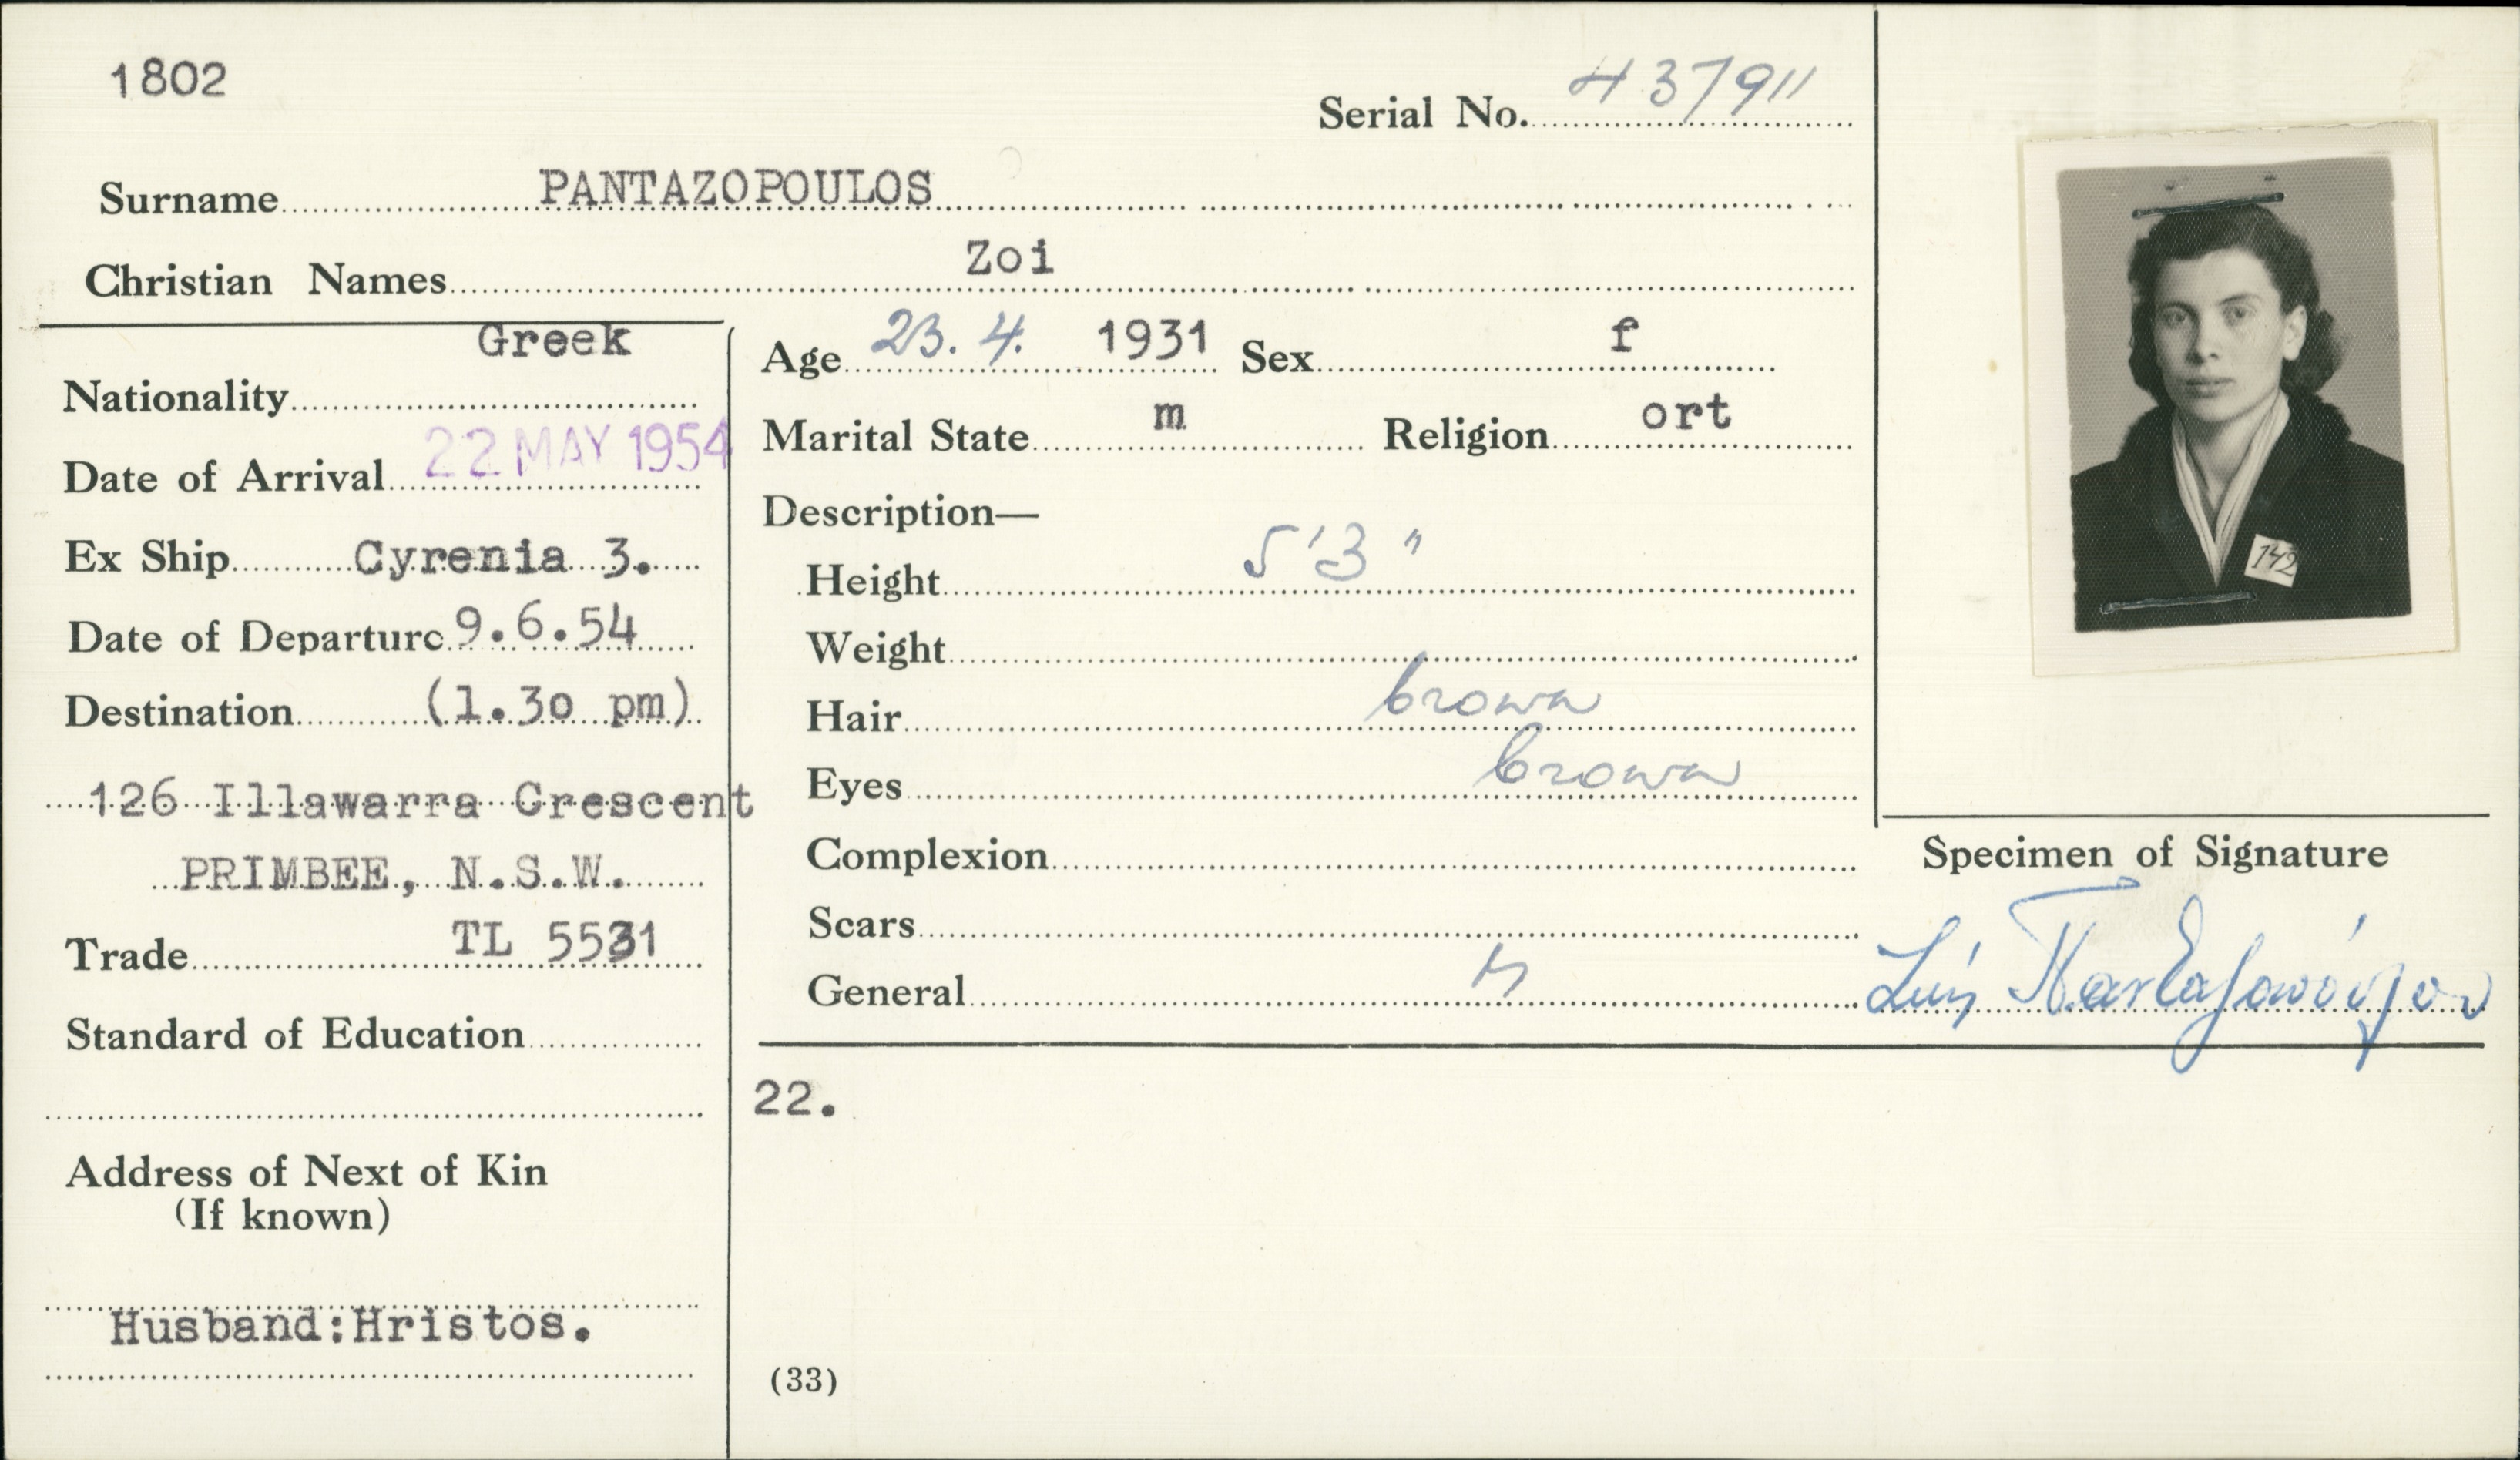 1802
Serial No. 437911
Surname PANTAZOPOULOS
Christian Names Zoi
Greek
Nationality
Date of Arrival 22 MAY 1954
Ex Ship Cyrenia 3.
Date of Departure 9.6.54
Destination (1.30 pm)
126 Illawarra Crescent
PRIMBEE, N.S.W.
Trade TL 5531
Standard of Education
Address of Next of Kin
(If known)
Husband:Hristos.
Age 23. 4. 1931 Sex f
Marital State m Religion ort
Description—
Height 5'3"
Weight
Hair brown
Eyes brown
Complexion
Scars
General
22.
(33)
142
Specimen of Signature
Ζωή Πανταζοπούλου